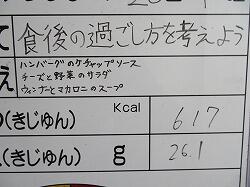 て 食後の過ごし方を考えよう
え ハンバーグのケチャップソース
チーズと野菜のサラダ
ウィンナーとマカロニのスープ
(きじゅん) Kcal 617
(きじゅん) g 26.1